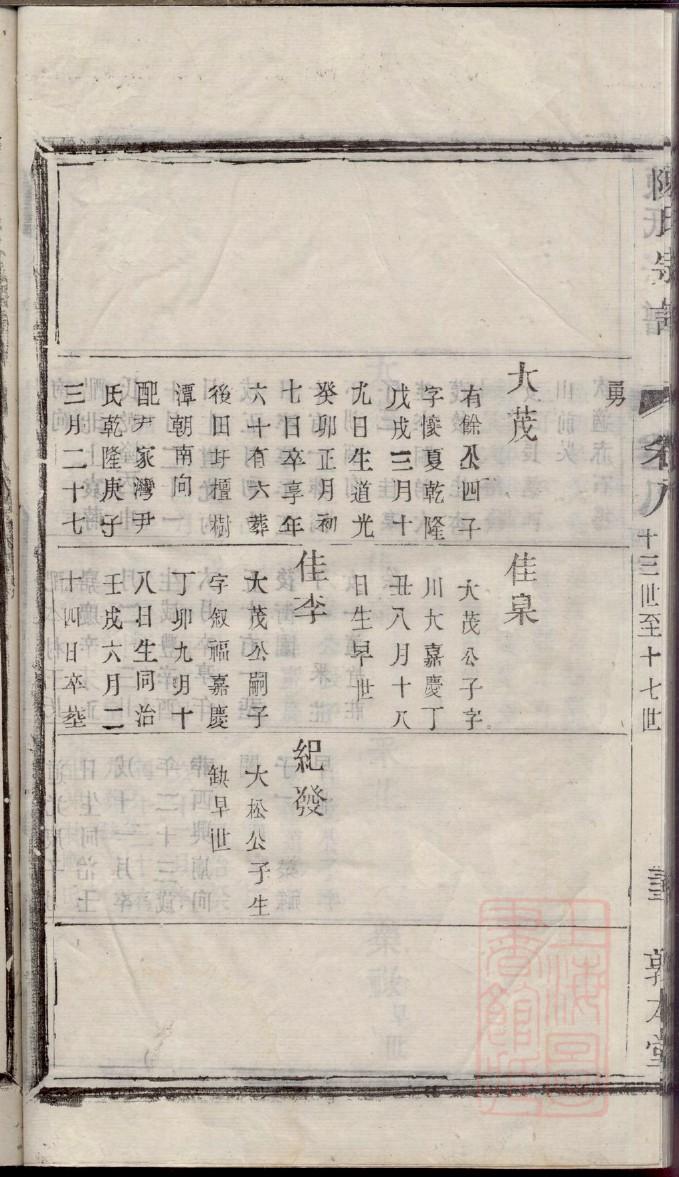 陳氏宗譜
卷八
十三世至十七世
敦本堂
勇
大茂
有餘公四子
字懐夏乾隆
戊戌三月十
九日生道光
癸卯正月初
七日卒享年
六十有六葬
後田圩檀樹
潭朝南向
配尹家灣尹
氏乾隆庚子
三月二十七
佳臬
大茂公子字
川大嘉慶丁
丑八月十八
日生早世
佳李
大茂公嗣子
字叙福嘉慶
丁卯九月十
八日生同治
壬戌六月二
十四日卒塟
紀發
大松公子生
缺早世
上海圖書館藏